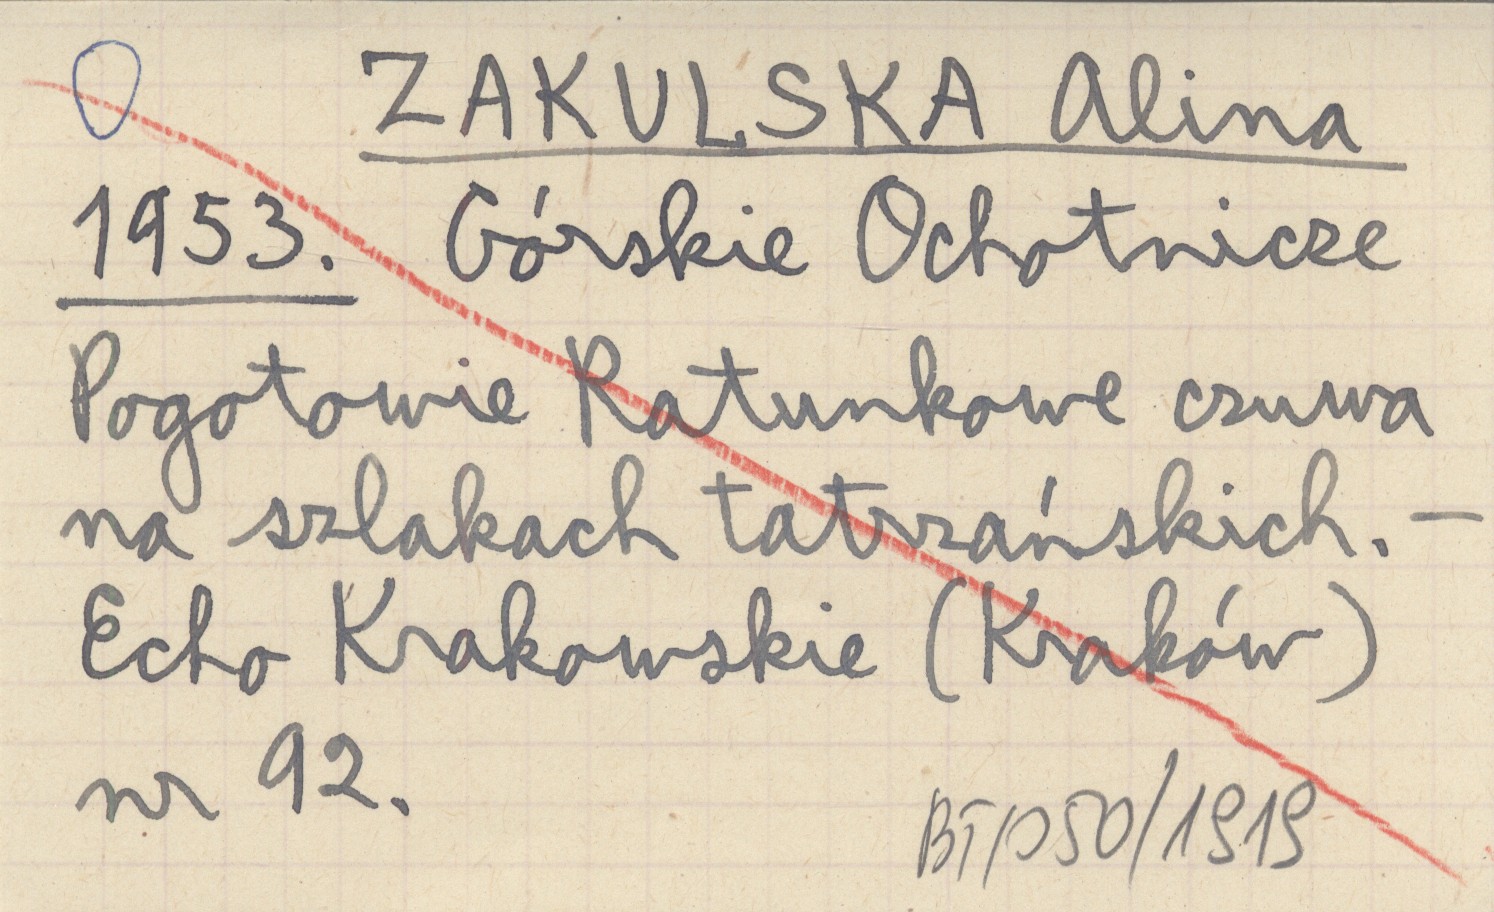 ZAKULSKA Alina
1953. Górskie Ochotnicze
Pogotowie Ratunkowe czuwa
na szlakach tatrzańskich. —
Echo Krakowskie (Kraków)
nr 92.
BT/p50/1919